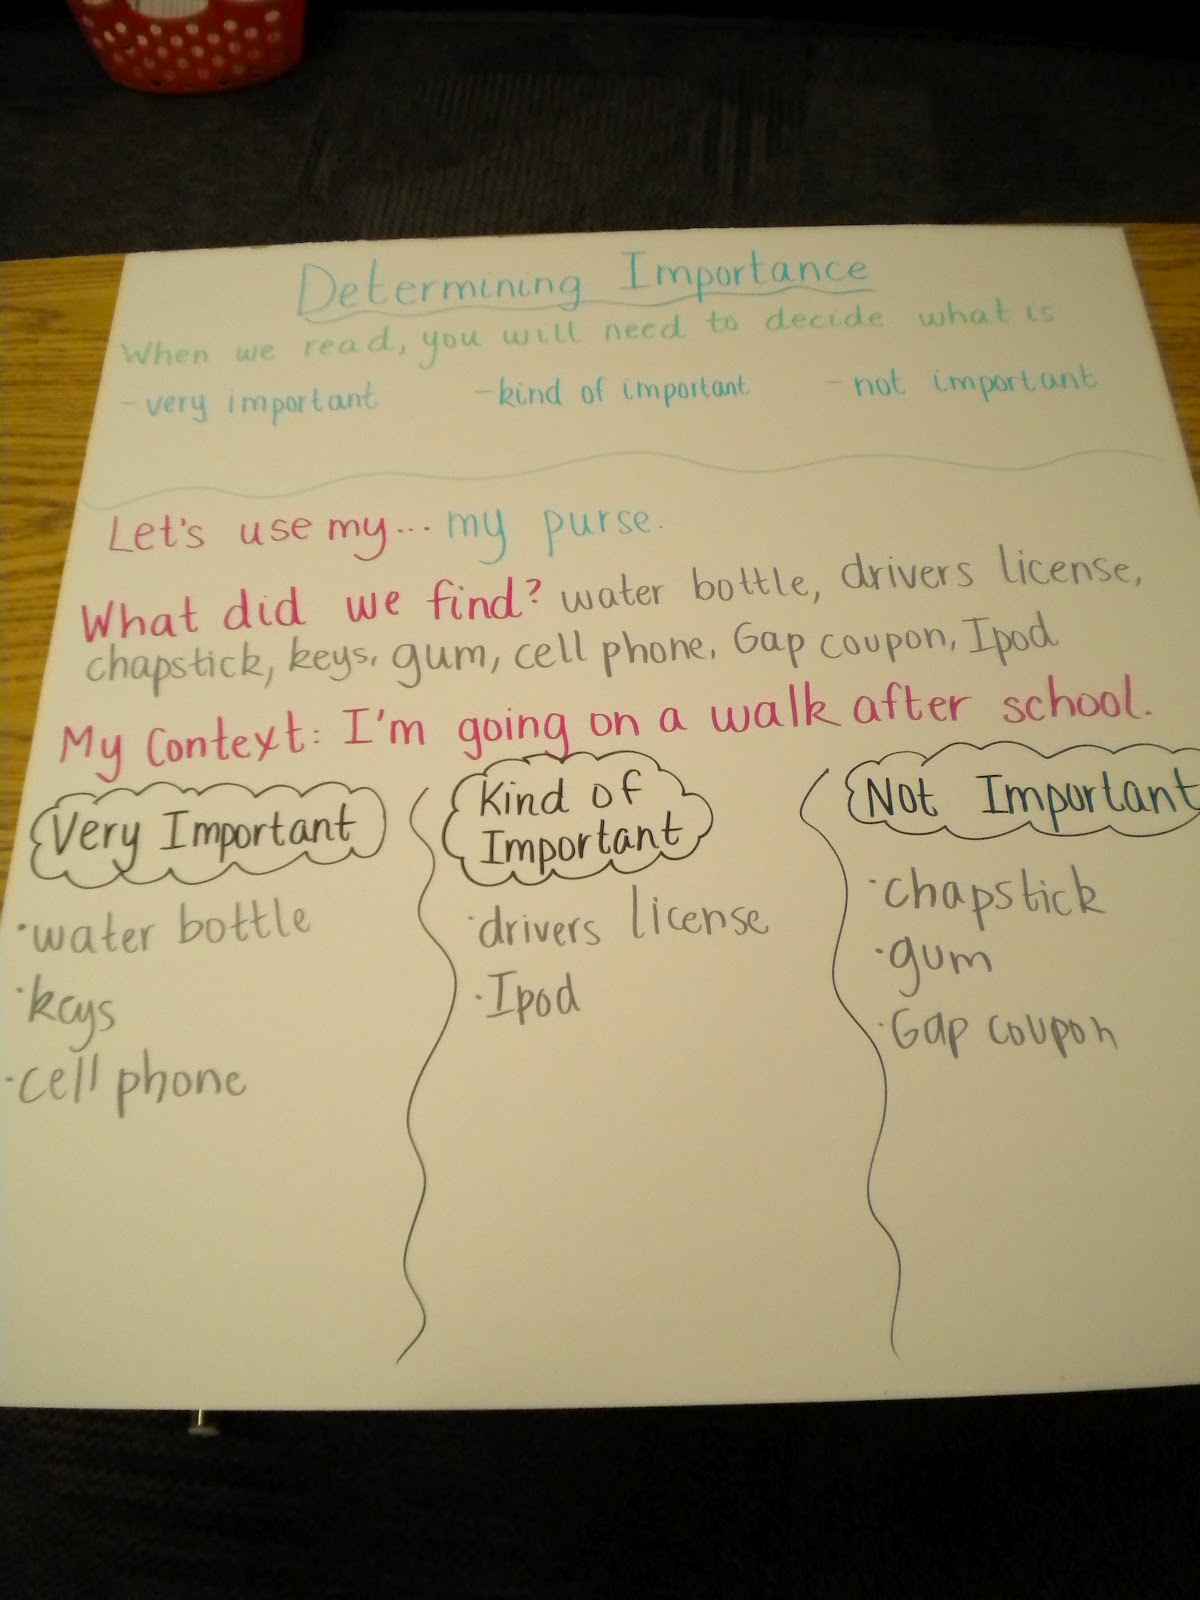 Determining Importance
When we read, you will need to decide what is
- very important - kind of important - not important
Let's use my... my purse.
What did we find? water bottle, drivers license,
chapstick, keys, gum, cell phone, Gap coupon, Ipod
My Context: I'm going on a walk after school.
Very Important
· water bottle
· keys
· cell phone
Kind of
Important
· drivers license
· Ipod
Not Important
· chapstick
· gum
· Gap coupon